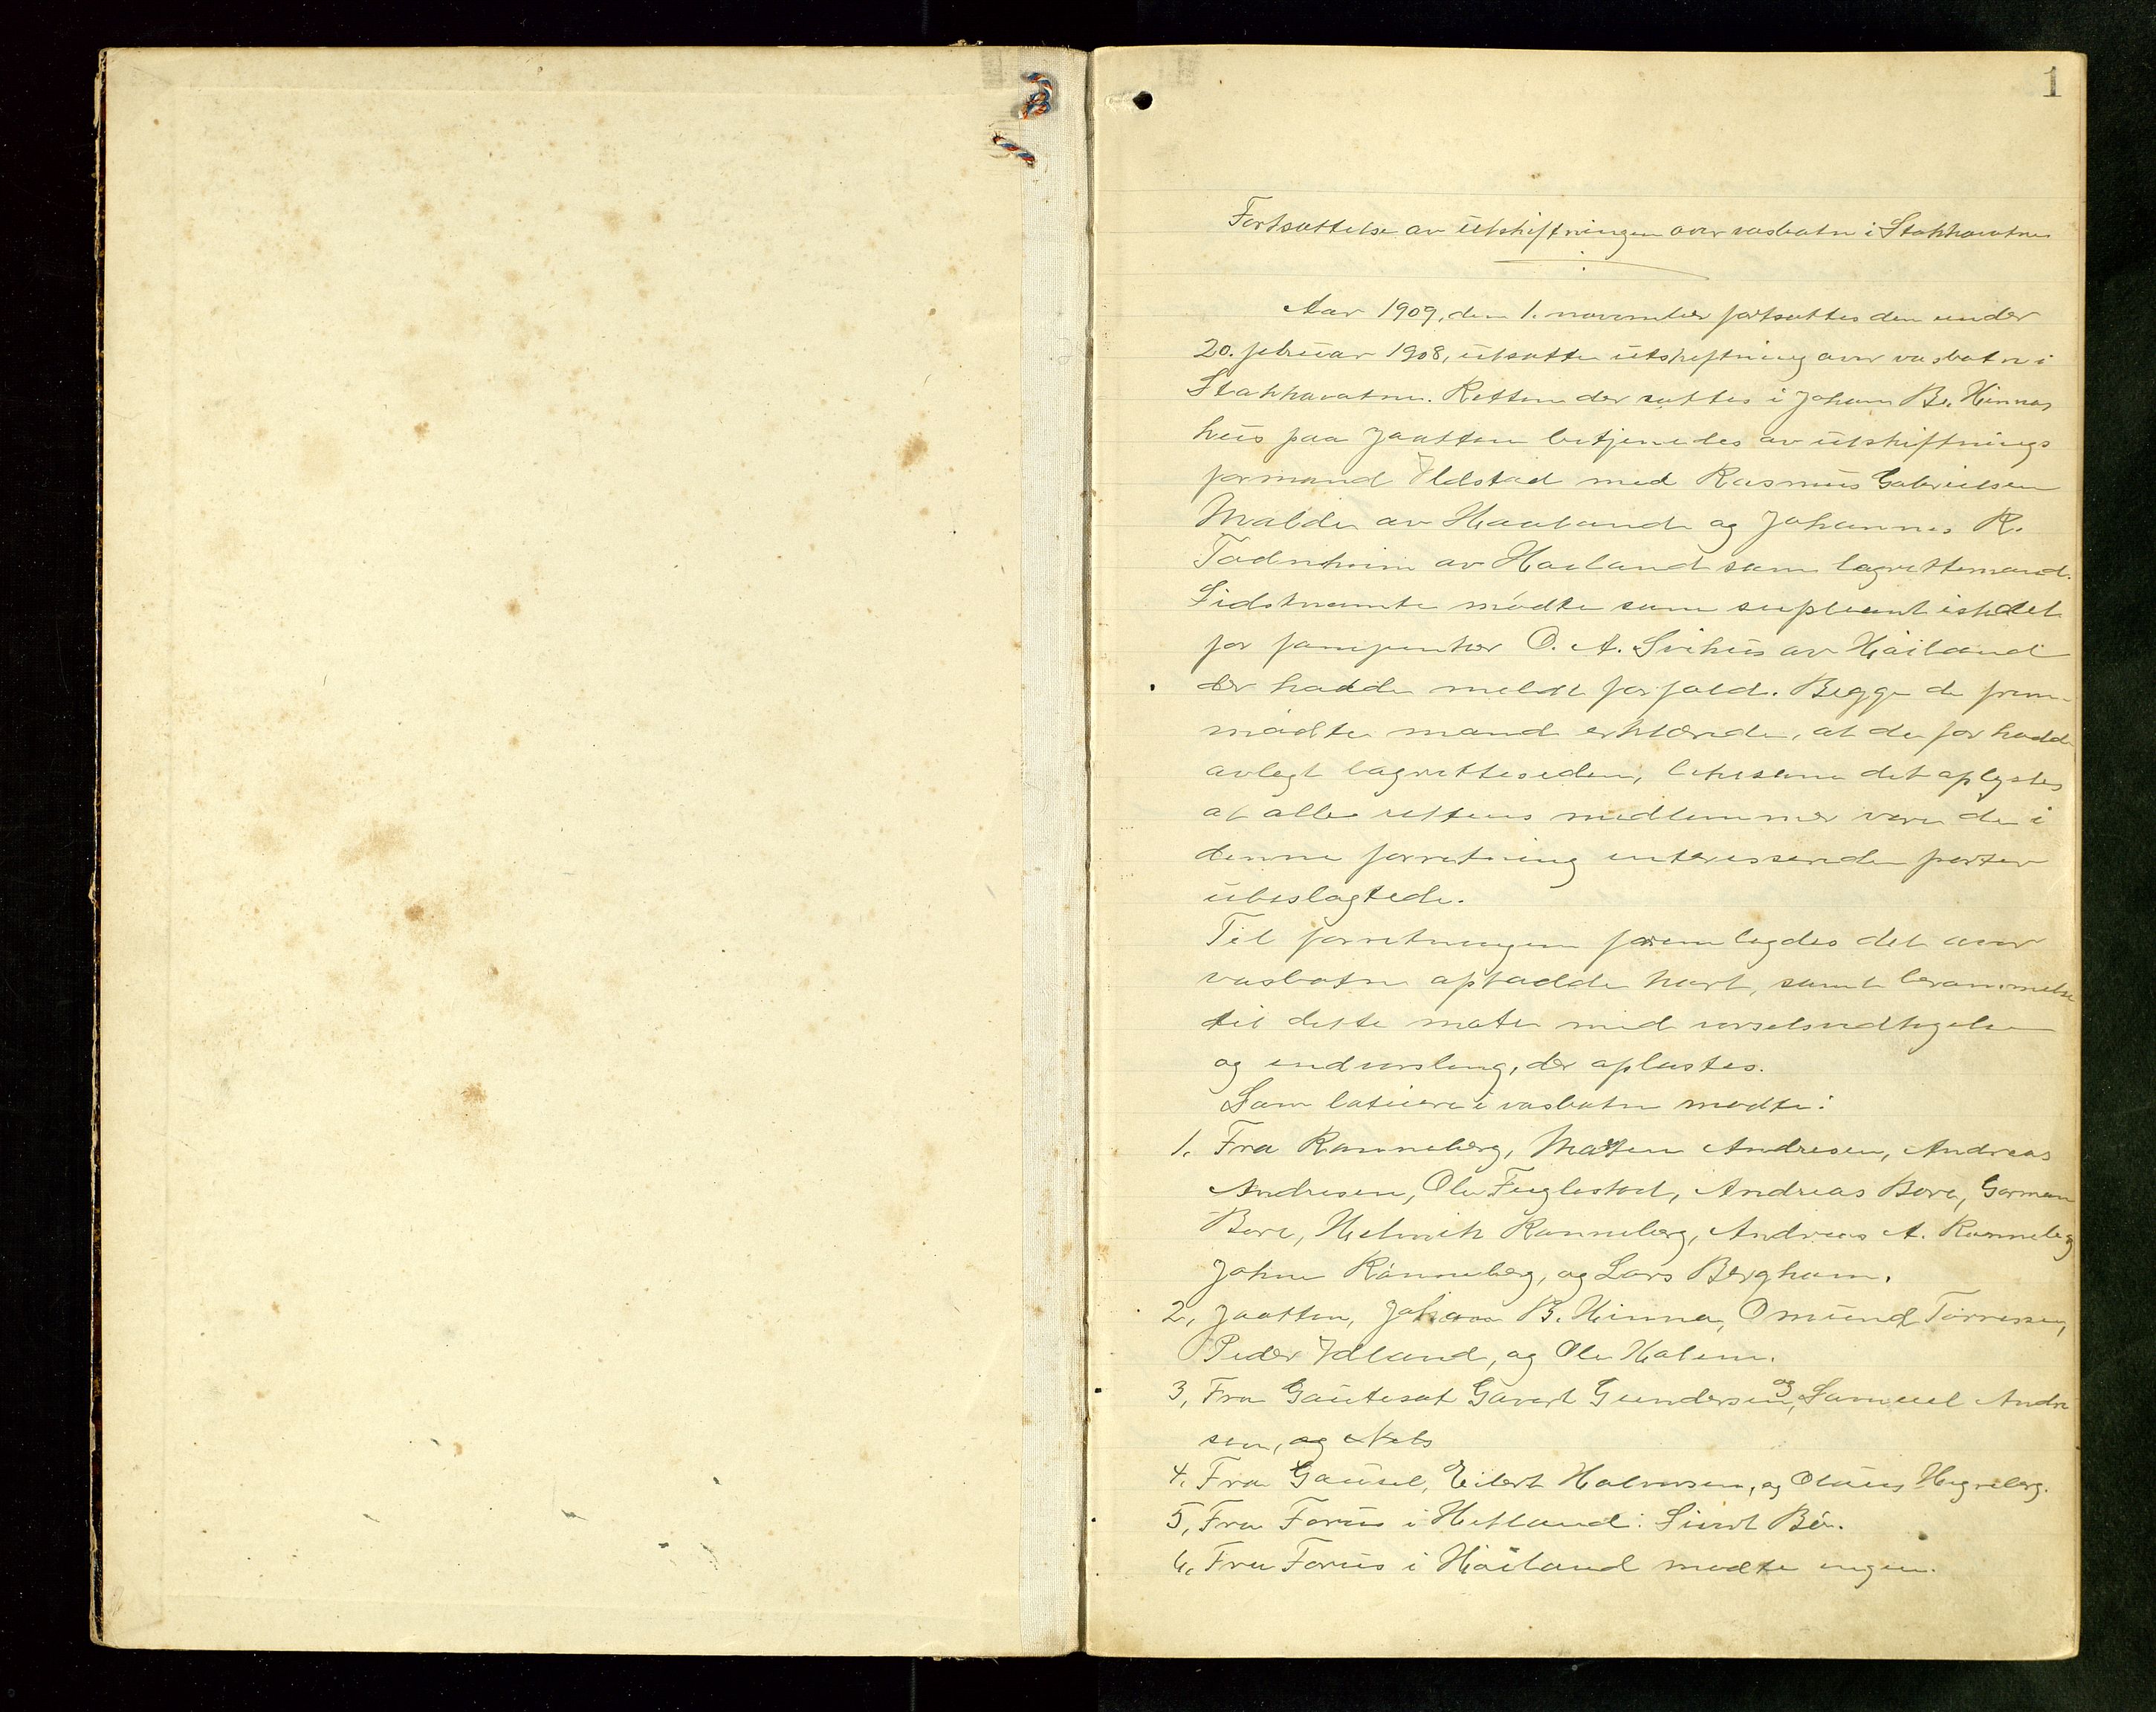 1
Fortsættelse av utskiftningen over vasbotn i Stokkavatnet
Aar 1909, den 1. november fortsattes den under
20. februar 1908, utsatte utskiftning over vasbotn i
Stokkavatnet. Retten der sattes i Johan B. Hinnas
hus paa Jaatten betjenedes av utskiftnings
formand Ilstad med Rasmus Gabrielsen
Malde av Haaland og Johannes R.
Todnheim av Høiland som lagrettemænd.
Sidstnævnte mødte som supleant istedet
for fempunker O. A. Svihus av Høiland
der hadde meldt forfald. Begge de frem-
mødte mænd erklærede, at de før hadde
avlegt lagretteseden, likesom det oplystes
at alle rettens medlemmer vare de i
denne forretning interesserede parter
ubeslægtede.
Til forretningen fremlagdes det over
vasbotn optadde kart, samt berammelse
til dette møte med varselsudtagelse
og indvarsling, der oplæstes.
Som lateiere i vasbotn mødte:
1. Fra Ranneberg, Morten Andresen, Andreas
Andresen, Ole Fuglestad, Andreas Bore, Gorman
Bore, Helmik Ranneberg, Andreas A. Ranneberg
John Ranneberg, og Lars Bergham.
2, Jaatten, Johan B. Hinna, Omund Torresen,
Peder Idland, og Ole Holem.
3, Fra Gautesøt Gavert Gundersen, og Samuel Andre
sen, og Nils
4. Fra Gausel, Eilert Halvorsen, og Olaus Hegreberg.
5, Fra Forus i Hetland: Sivert Bø.
6, Fra Forus i Høiland mødte ingen.